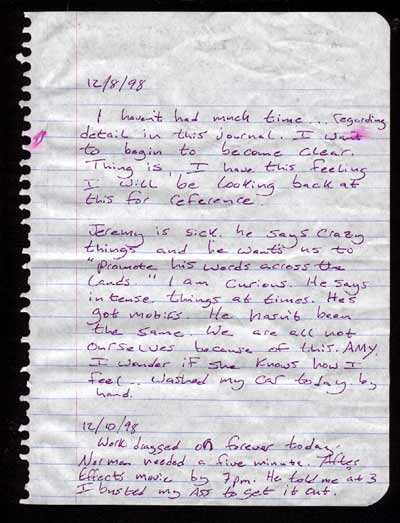 12/8/98
I haven't had much time... regarding
detail in this journal. I want
to begin to become clear.
Thing is, I have this feeling
I will be looking back at
this for reference.
Jeremy is sick. he says crazy
things and he wants us to
"promote his words across the
lands." I am curious. He says
intense things at times. He's
got motives. He hasn't been
the same. We are all not
ourselves because of this. AMY.
I wonder if she knows how I
feel... washed my car today by
hand.
12/10/98
Work dragged on forever today.
Norman needed a five minute After
Effects movie by 7pm. He told me at 3
I busted my ASS to get it out.